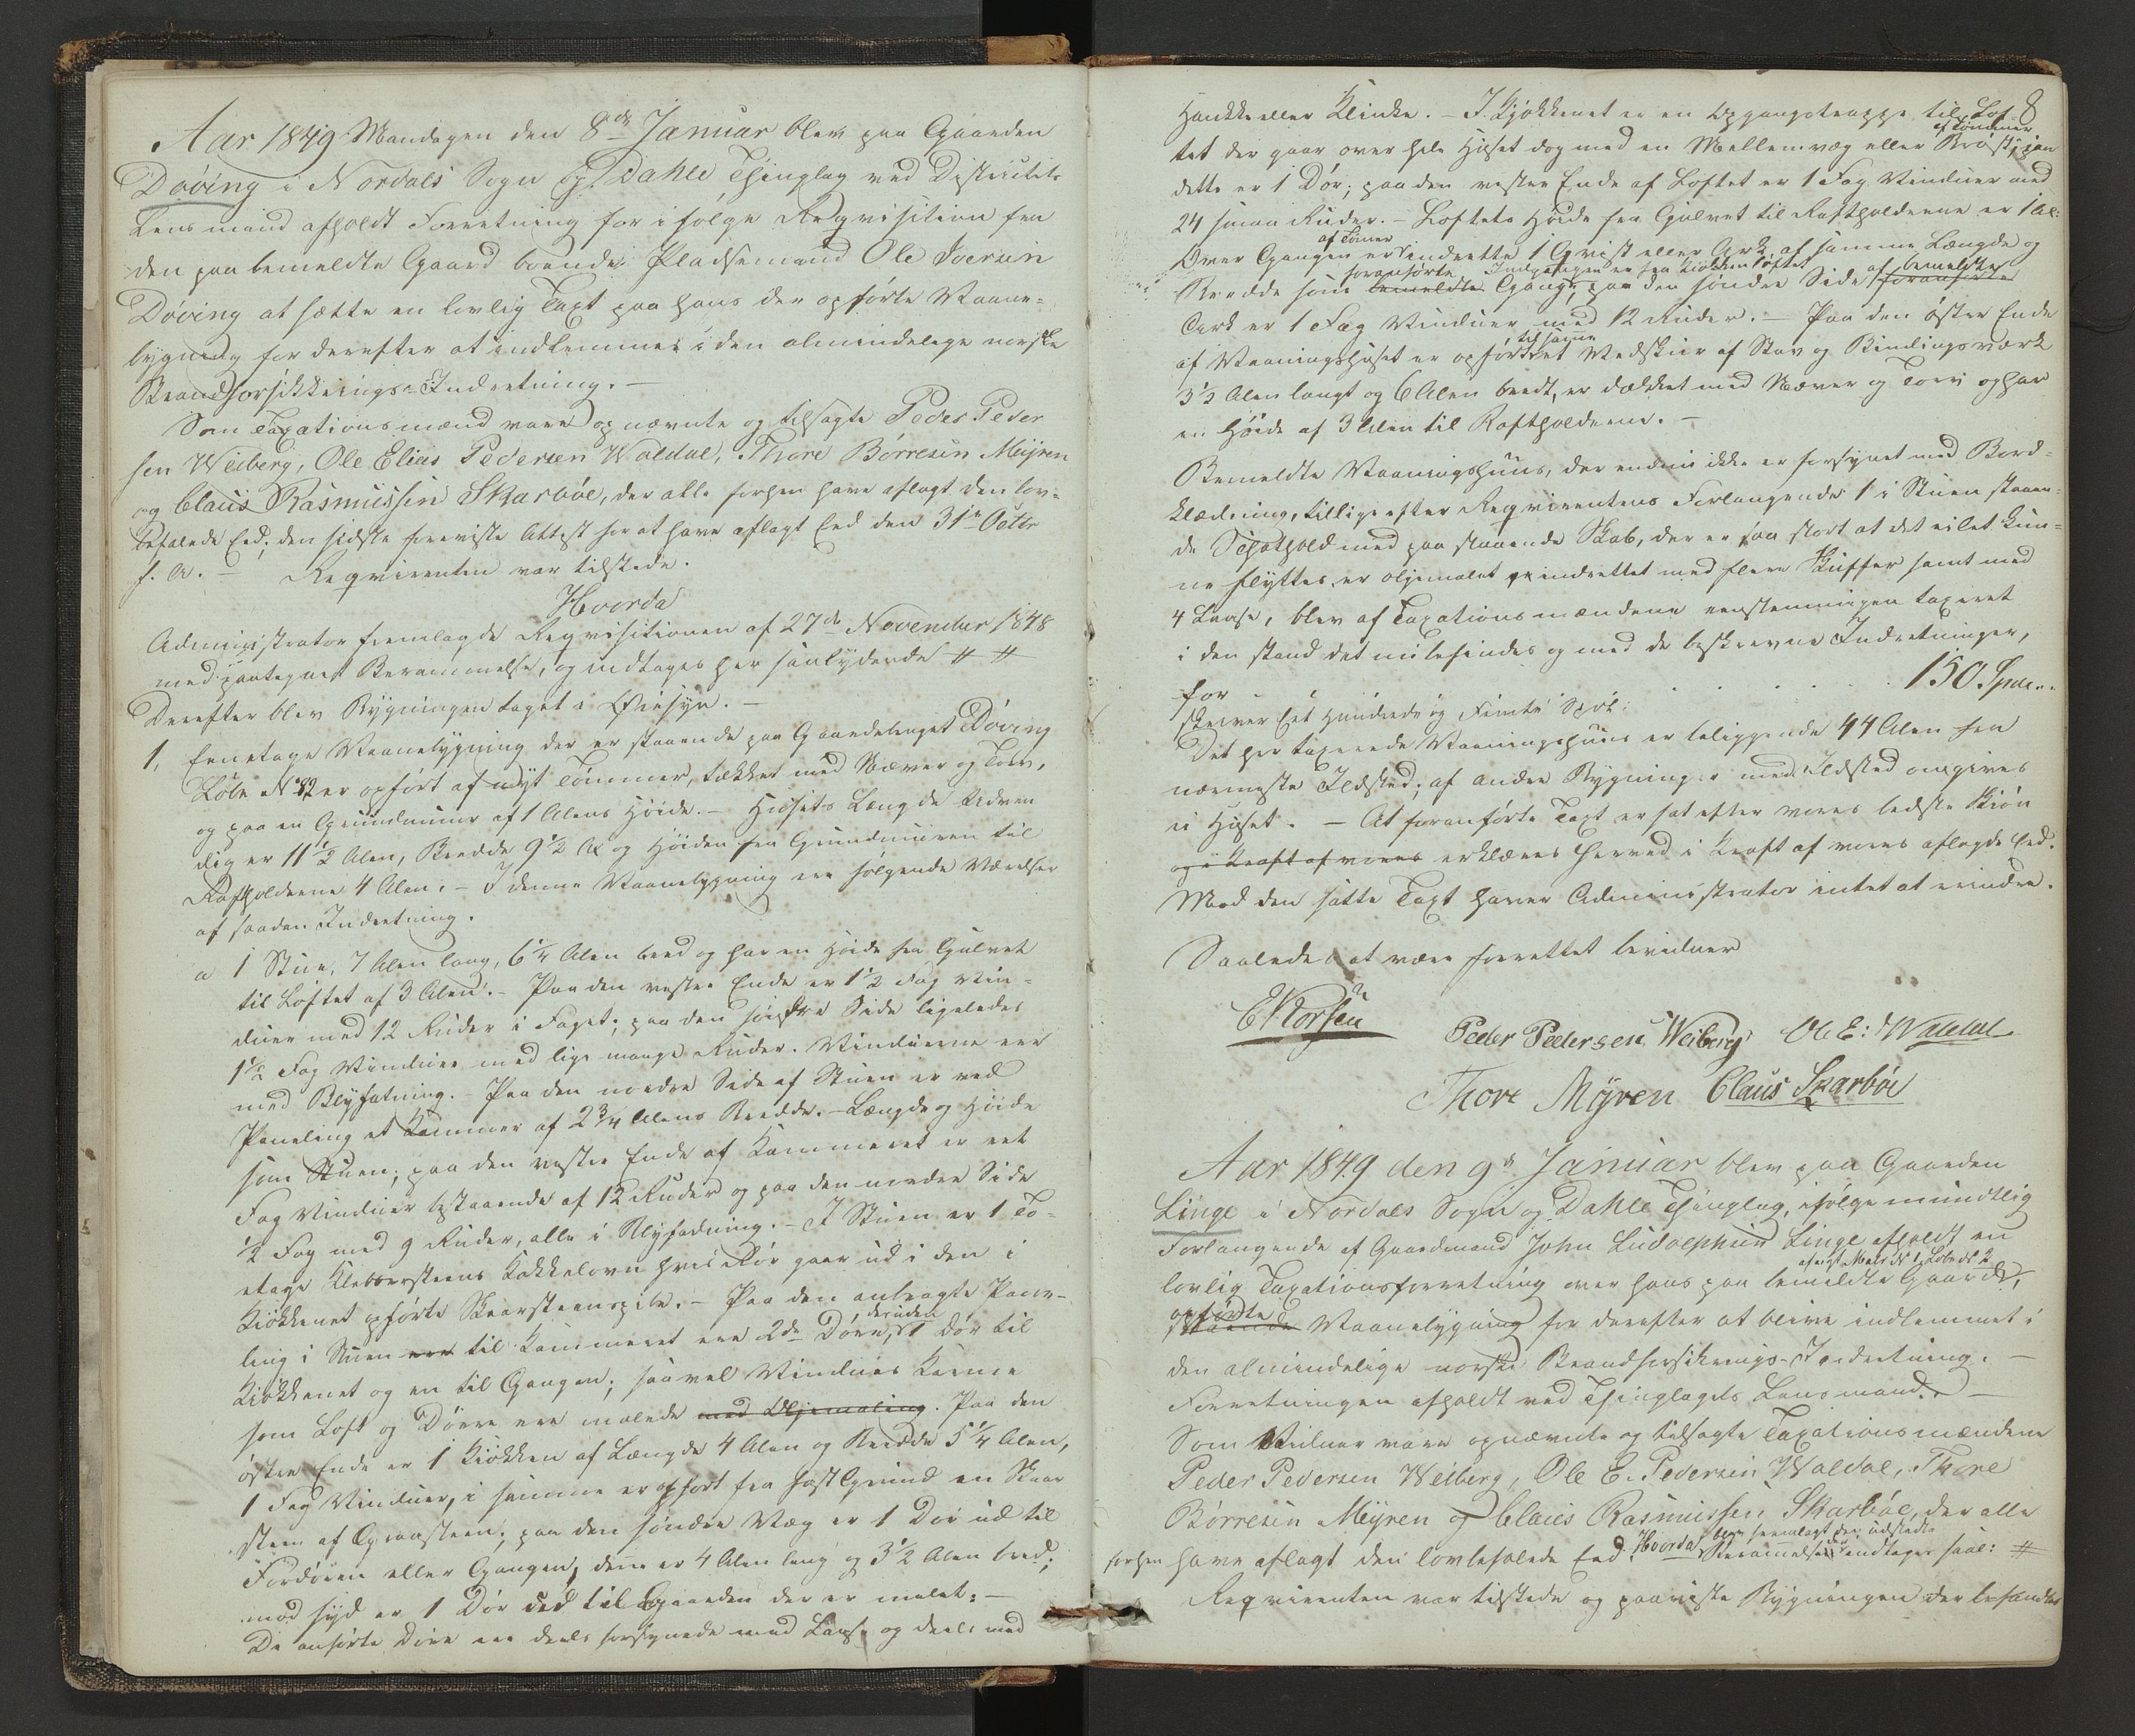 Aar 1849 Mandagen den 8de Januar blev paa Gaarden
Döving i Nordals Sogn og Dahle Thinglag ved Districtets
Lensmand afholdt Forretning for i følge Reqvisition fra
den paa bemeldte Gaard boende Pladsemand Ole Iversen
Döving at sætte en lovlig Taxt paa hans der opførte Vaane-
bygning for derefter at indlemmes i den almindelige norske
Brandforsikkrings-Indretning. –
Som Taxationsmænd vare opnævnte og tilsagte Peder Peder
sen Weiberg, Ole Elias Pedersen Waldal, Thore Börresen Myren
og Claus Rasmussen Skarböe, der alle forhen have aflagt den lov-
befalede Ed; den sidste foreviste Attest for at have aflagt Ed den 31te Octbr
f. A. – Reqvirenten var tilstede.
Hvorda
Administrator fremlagde Reqvisitionen af 27de November 1848
med paategnet Berammelse, og indtages her saalydende # #
Derefter blev Bygningen taget i Øiesyn. –
1, Eenetages Vaanebygning der er staaende paa Gaardebruget Döving
Löbe No 82 er opført af nyt Tømmer, tækket med Næver og Torv,
og paa en Grundmuur af 1 Alens Høide. – Husets Længde Udven
dig er 11½ Alen, Bredde 9½ Al og Høiden fra Grundmuren til
Raftholderne 4 Alen. – I denne Vaanebygning ere følgende Værelser
af saadan Indretning.
a 1 Stue, 7 Alen lang, 6¼ Alen bred og har en Høide fra Gulvet
til Loftet af 3 Alen. – Paa den vestre Ende er 1½ Fag Vin-
duer med 12 Ruder i Faget; paa den søndre Side ligeledes
1½ Fag Vinduer med lige mange Ruder. Vinduerne ere
med Blyfatning. – Paa den nordre Side af Stuen er ved
Paneling et Kammer af 2¾ Alens Bredde. – Længde og Høide
som Stuen; paa den vestre Ende af Kammeret er eet
Fag Vinduer bestaaende af 12 Ruder og paa den nordre Side
½ Fag med 9 Ruder, alle i Blyfadning. – I Stuen er 1 To-
etages Klebbersteens Kakkelovn hvis Rör gaar ud i den i
Kiökkenet opførte Skorsteenspibe. – Paa den anbragte Pane-
ling i Stuen ere til Kammeret ere 2de Døre, desuden 1 Dør til
Kiøkkenet og en til Gangen; saavel Vinduers Karme
som Loft og Døre ere malede med Oljemaling. Paa den
østre Ende er 1 Kiökken af Længde 4 Alen og Bredde 5¼ Alen,
1 Fag Vinduer, i samme er opført fra fast Grund en Skor
steen af Graasteen; paa den søndre Væg er 1 Dør ud til
Fordøren eller Gangen, denne er 4 Alen lang og 3½ Alen bred;
mod syd er 1 Dør ud til Gaarden der er malet: –
De anførte Døre ere deels forsynede med Laase og deels med
8
Haukke eller Klinke. – I Kjøkkenet er en Opgangstrappe til Lof-
tet der gaar over hele Huset dog med en Mellemvæg eller Bröst af Tømmer, paa
dette er 1 Dør; paa den vestre Ende af Loftet er 1 Fag Vinduer med
24 smaa Ruder. – Loftets Høide fra Gulvet til Raftholderne er 1 Al:
Over Gangen er af Tømer indrettet 1 Qvist eller Ark af samme Længde og
Bredde som bemeldte foranførte Gang, Indgangen er fra Kiökkenloftet, paa den søndre Side af bemeldte foranførte
Ark er 1 Fag Vinduer med 12 Ruder. – Paa den öster Ende
af Vaaningshuset er opført tilsame et Vedskiur af Stav og Bindingsværk
3½ Alen langt og 6 Alen bredt, er tækket med Næver og Torv og har
en Høide af 3 Alen til Raftholderne. –
Bemeldte Vaaningshuus, der endnu ikke er forsynet med Bord-
klædning, tillige efter Reqvirentens Forlangende 1 i Stuen staaen-
de Schathold med paa staaende Skab, der er saa stort at det ei let kun-
ne flyttes, er oljemalet er indrettet med flere Skuffer samt med
4 Laase, blev af Taxationsmændene eenstemmigen taxeret
i den stand det nu befindes og med de beskrevne Indretninger,
for . . . . . . 150 Spec..
skriver Eet Hundrede og Femti Spd:
Det her taxerede Vaaningshuus er beliggende 44 Alen fra
nærmeste Ildsted; af andre Bygninger med Ildsted omgives
ei Huset. – At foranførte Taxt er sat efter vores bedste Skiøn
og i Kraft af vores erklæres herved i Kraft af vores aflagde Ed.
Mod den satte Taxt haver Administrator intet at erindre.
Saaledes at være forrettet bevidner
E Korsen
Peder Pedersen Weiberg Ole E: Waldal
Thore Myren Claus Skarböe
Aar 1849 den 9de Januar blev paa Gaarden
Linge i Nordals Sogn og Dahle Thinglag, ifølge mundtlig
Forlangende af Gaardmand John Ludolphsen Linge afholdt en
lovlig Taxationsforretning over hans paa bemeldte Gaard, af nyt Matr No 1, Löbe No 2
staaende opførte Vaanebygning for derefter at blive indlemmet i
den almindelige norske Brandforsikrings-Indretning. –
Forretningen afholdt ved Thinglagets Lensmand. –
Som Vidner vare opnævnte og tilsagte Taxationsmændene
Peder Pedersen Weiberg, Ole E. Pedersen Waldal, Thore
Börresen Myren og Claus Rasmussen Skarböe, der alle
forhen have aflagt den lovbefalede Ed. Hvorda blev fremlagt den udstedte Berammelse der indtages saal: #
Reqvirenten var tilstede og paaviste Bygningen der befandtes